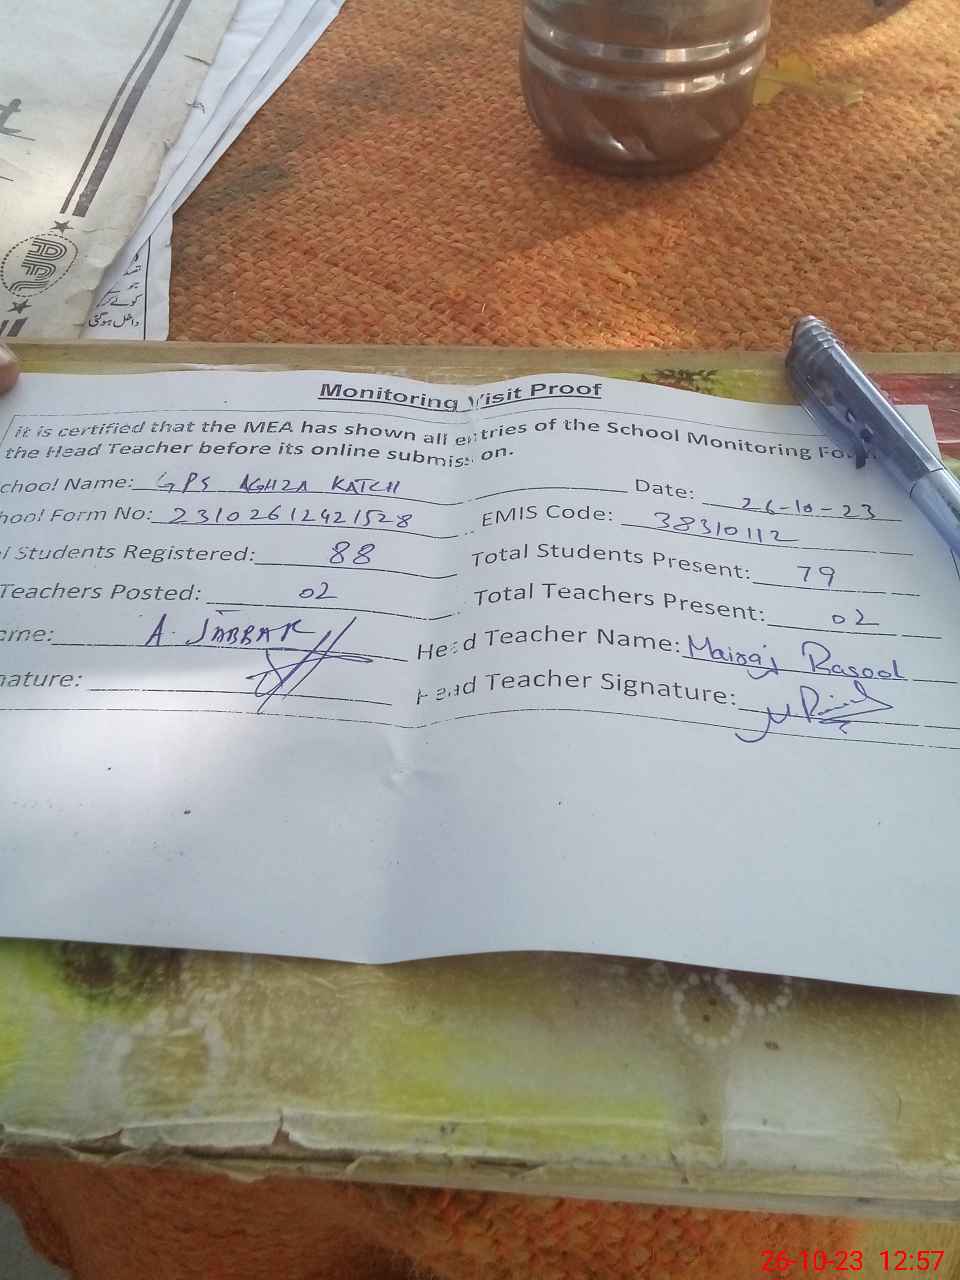 APL
کوئے کر
داخل ہوگئی
Monitoring Visit Proof
it is certified that the MEA has shown all entries of the School Monitoring Form
the Head Teacher before its online submission.
chool Name: GPS AGHZA KATCH Date: 26-10-23
hool Form No: 23102612421528 EMIS Code: 38310112
l Students Registered: 88 Total Students Present: 79
Teachers Posted: 02 Total Teachers Present: 02
ame: A. JABBAR Head Teacher Name: Mairaj Rasool
nature: Head Teacher Signature:
26-10-23 12:57